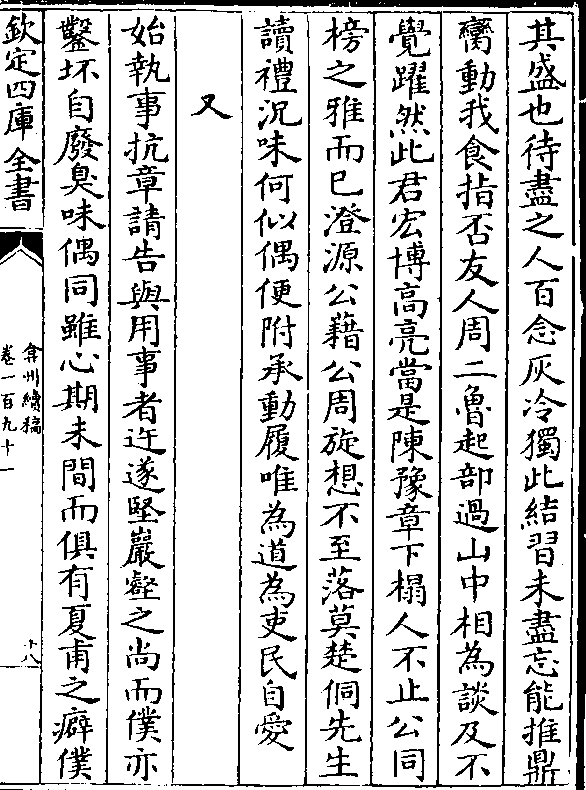 其盛也待盡之人百念灰冷獨此結習未盡忘能推鼎
臠動我食指否友人周二魯起部過山中相為談及不
覺躍然此君宏博高亮當是陳豫章下榻人不止公同
榜之雅而已澄源公藉公周旋想不至落莫楚侗先生
讀禮況味何似偶便附承動履唯為道為吏民自愛
又
始執事抗章請告與用事者迕遂堅巖壑之尚而僕亦
鑿坏自廢臭味偶同雖心期未間而俱有夏甫之癖僕
欽定四庫全書
弇州續稿
卷一百九十一
十八